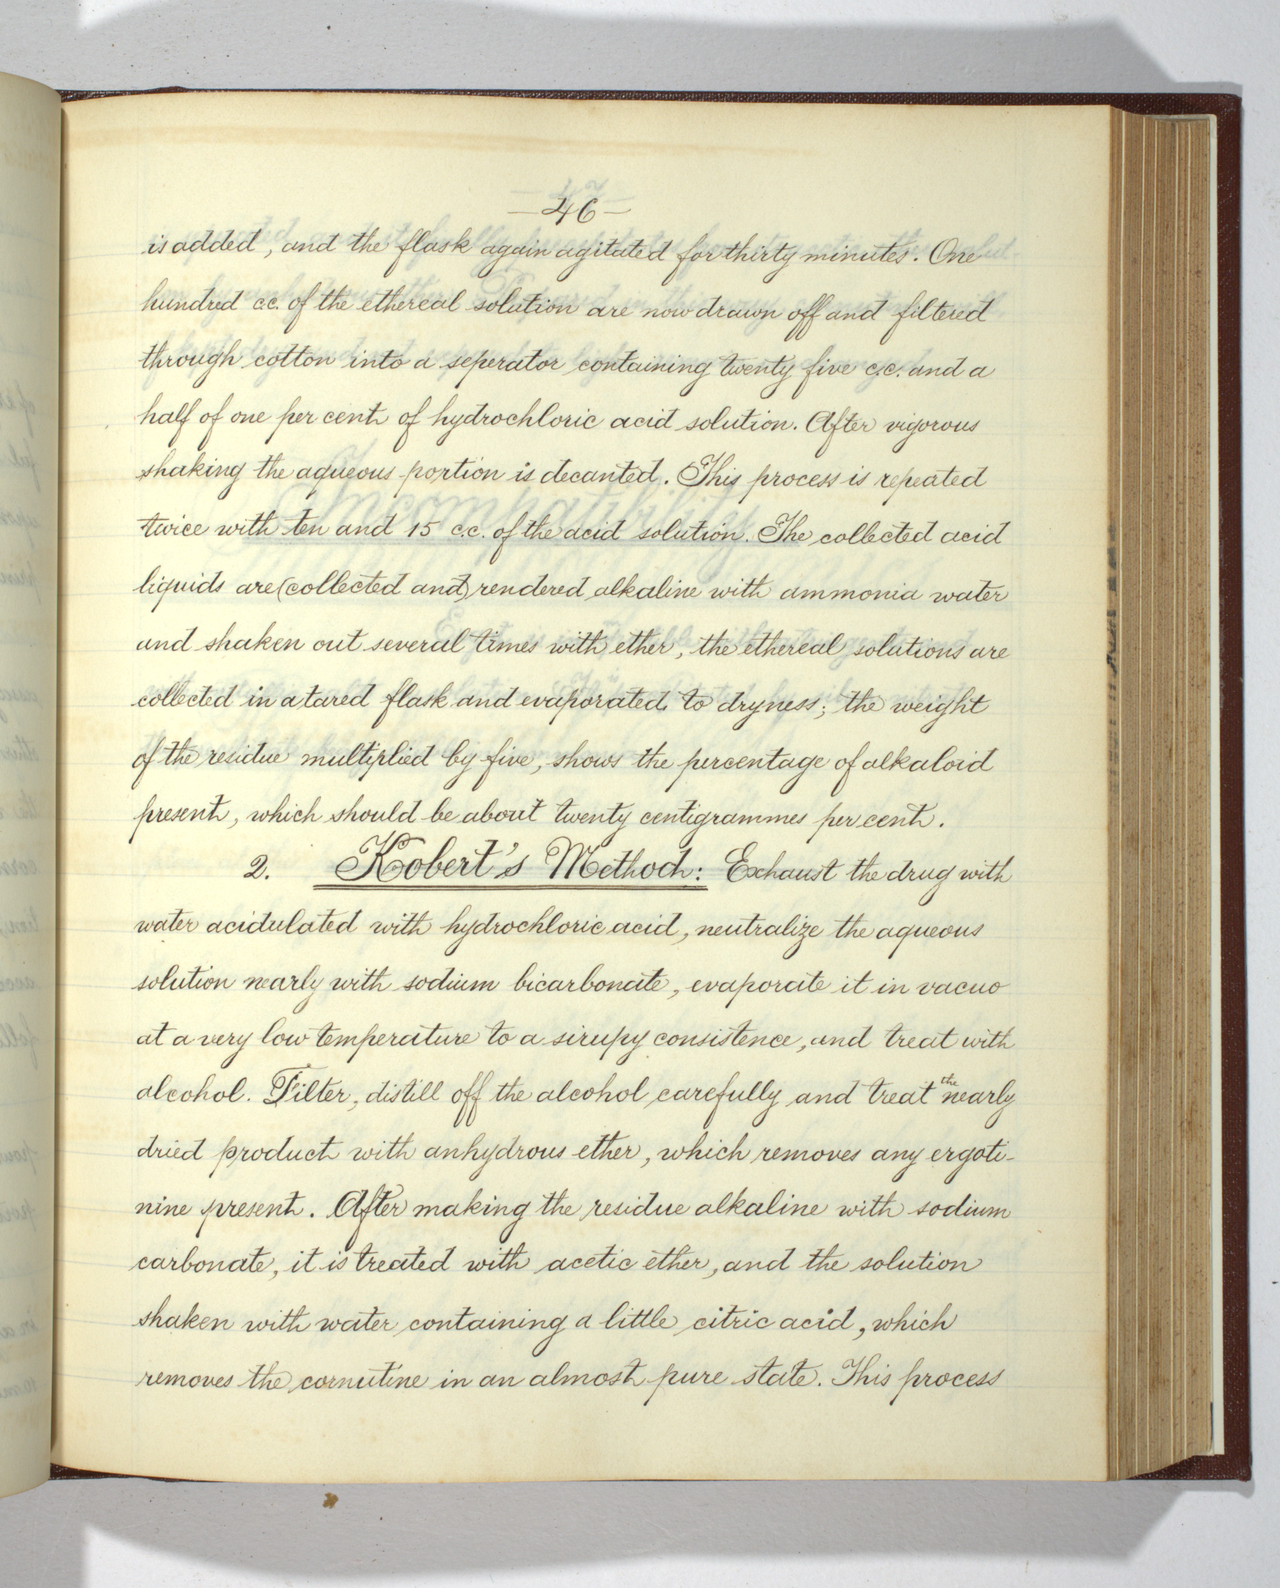 — 46 —
is added, and the flask again agitated for thirty minutes. One
hundred c.c. of the ethereal solution are now drawn off and filtered
through cotton into a seperator containing twenty five c.c. and a
half of one per cent of hydrochloric acid solution. After vigorous
shaking the aqueous portion is decanted. This process is repeated
twice with ten and 15 c.c. of the acid solution. The collected acid
liquids are (collected and) rendered alkaline with ammonia water
and shaken out several times with ether, the ethereal solutions are
collected in a tared flask and evaporated to dryness; the weight
of the residue multiplied by five, shows the percentage of alkaloid
present, which should be about twenty centigrammes per cent.
2. Kobert's Method: Exhaust the drug with
water acidulated with hydrochloric acid, neutralize the aqueous
solution nearly with sodium bicarbonate, evaporate it in vacuo
at a very low temperature to a sirupy consistence, and treat with
alcohol. Filter, distill off the alcohol carefully and treat the nearly
dried product with anhydrous ether, which removes any ergoti-
nine present. After making the residue alkaline with sodium
carbonate, it is treated with acetic ether, and the solution
shaken with water containing a little citric acid, which
removes the cornutine in an almost pure state. This process